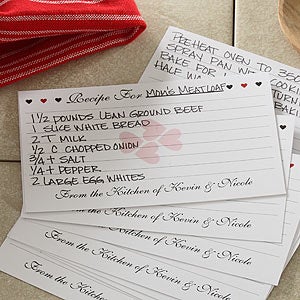 Recipe For MOM'S MEATLOAF
1½ POUNDS LEAN GROUND BEEF
1 SLICE WHITE BREAD
2 T MILK
½ C CHOPPED ONION
¾ t SALT
¼ t PEPPER
2 LARGE EGG WHITES
From the Kitchen of Kevin & Nicole
PREHEAT OVEN TO 350
SPRAY PAN WITH COOKING
BAKE FOR
HALF WA
From the Kitchen of Kevin & Nicole
From the Kitchen of Kevin & Nicole
From the Kitchen of Kevin & Nicole